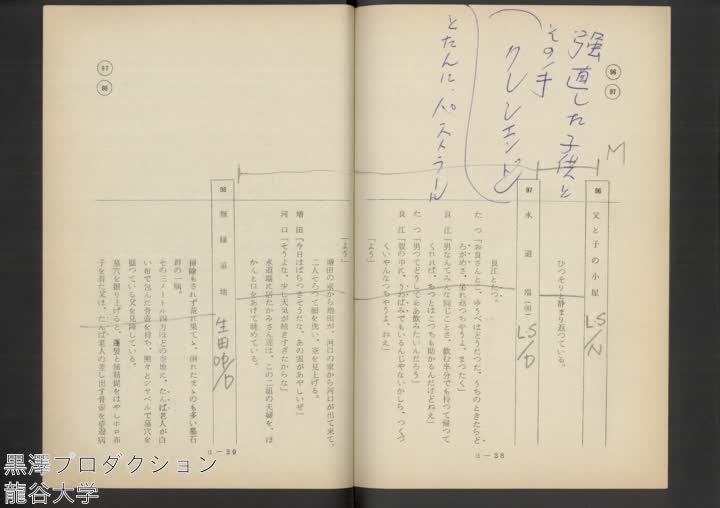 強直した子供と
その手
クレッシェンド
とたんに、パストラール
M
96
97
96
父と子の小屋
LS/N
ひつそりと静まり返つている。
97
水道端(朝)
LS/D
良江とたつ。
たつ「お良さんとこ、ゆうべはどうだつた。うちのときたらど
良江「男なんてみんな同じことさ、飲む半分でも持つて帰つて
くれれば、ちつとはこつちも助かるんだけどねえ」
たつ「男つてどうしてああ飲みたいんだろう」
良江「腹の中に、うわばみでもいるんじやないかしら、つくづ
くいやんなつちやうよ、ねえ」
「よう」
ほ—38
97
98
「よう」
増田の家から増田が、河口の家から河口が出て来て、
二人そろつて顔を洗い、空を見上げる。
増田「今日はぱらつきそうだな、あの雲があやしいぜ」
河口「そうよな、少し天気が続きすぎたからな」
水道端に居たかみさん達は、この二組の夫婦を、ぽ
かんと口をあけて眺めている。
98
無縁墓地
生田OP/D
掃除もされず荒れ果てゝ、倒れたまゝのも多い墓石
群の一隅。
その三メートル四方ほどの空地に、たんば老人が白
い布で包んだ骨壺を持ち、黙々とシャベルで墓穴を
掘つている父を見降している。
墓穴を掘り上げると、蓬髪と無精髭をはやしボロ布
子を着た父は、たんば老人の差し出す骨壺を夢遊病
ほ—39
黒澤プロダクション
龍谷大学